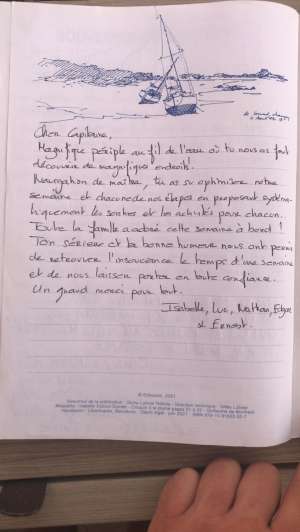 Cher Capitaine,
Magnifique périple au fil de l'eau où tu nous as fait
découvrir de magnifiques endroits.
Navigation de maître, tu as su optimiser notre
semaine et chacune de nos étapes en proposant systéma-
tiquement les sorties et les activités pour chacun.
Toute la famille a adoré cette semaine à bord !
Ton sérieux et ta bonne humeur nous ont permis
de retrouver l'insouciance le temps d'une semaine
et de nous laisser porter en toute confiance.
Un grand merci pour tout.
Isabelle, Luc, Nathan, Edgar
et Ernest.